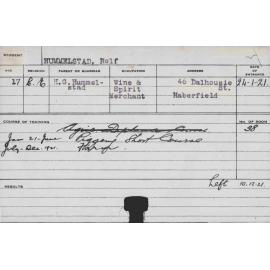 STUDENT
HUMMELSTAD, Rolf
AGE RELIGION PARENT OR GUARDIAN OCCUPATION ADDRESS DATE OF ENTRANCE
17 C.E. H.G.Hummelstad Wine & Spirit Merchant 46 Dalhousie St. Haberfield 24-1-21.
COURSE OF TRAINING NO. OF ROOM
38
Jan 21-June Piggery Short Course
July-Dec. 1921.
RESULTS
Left 10.12.21